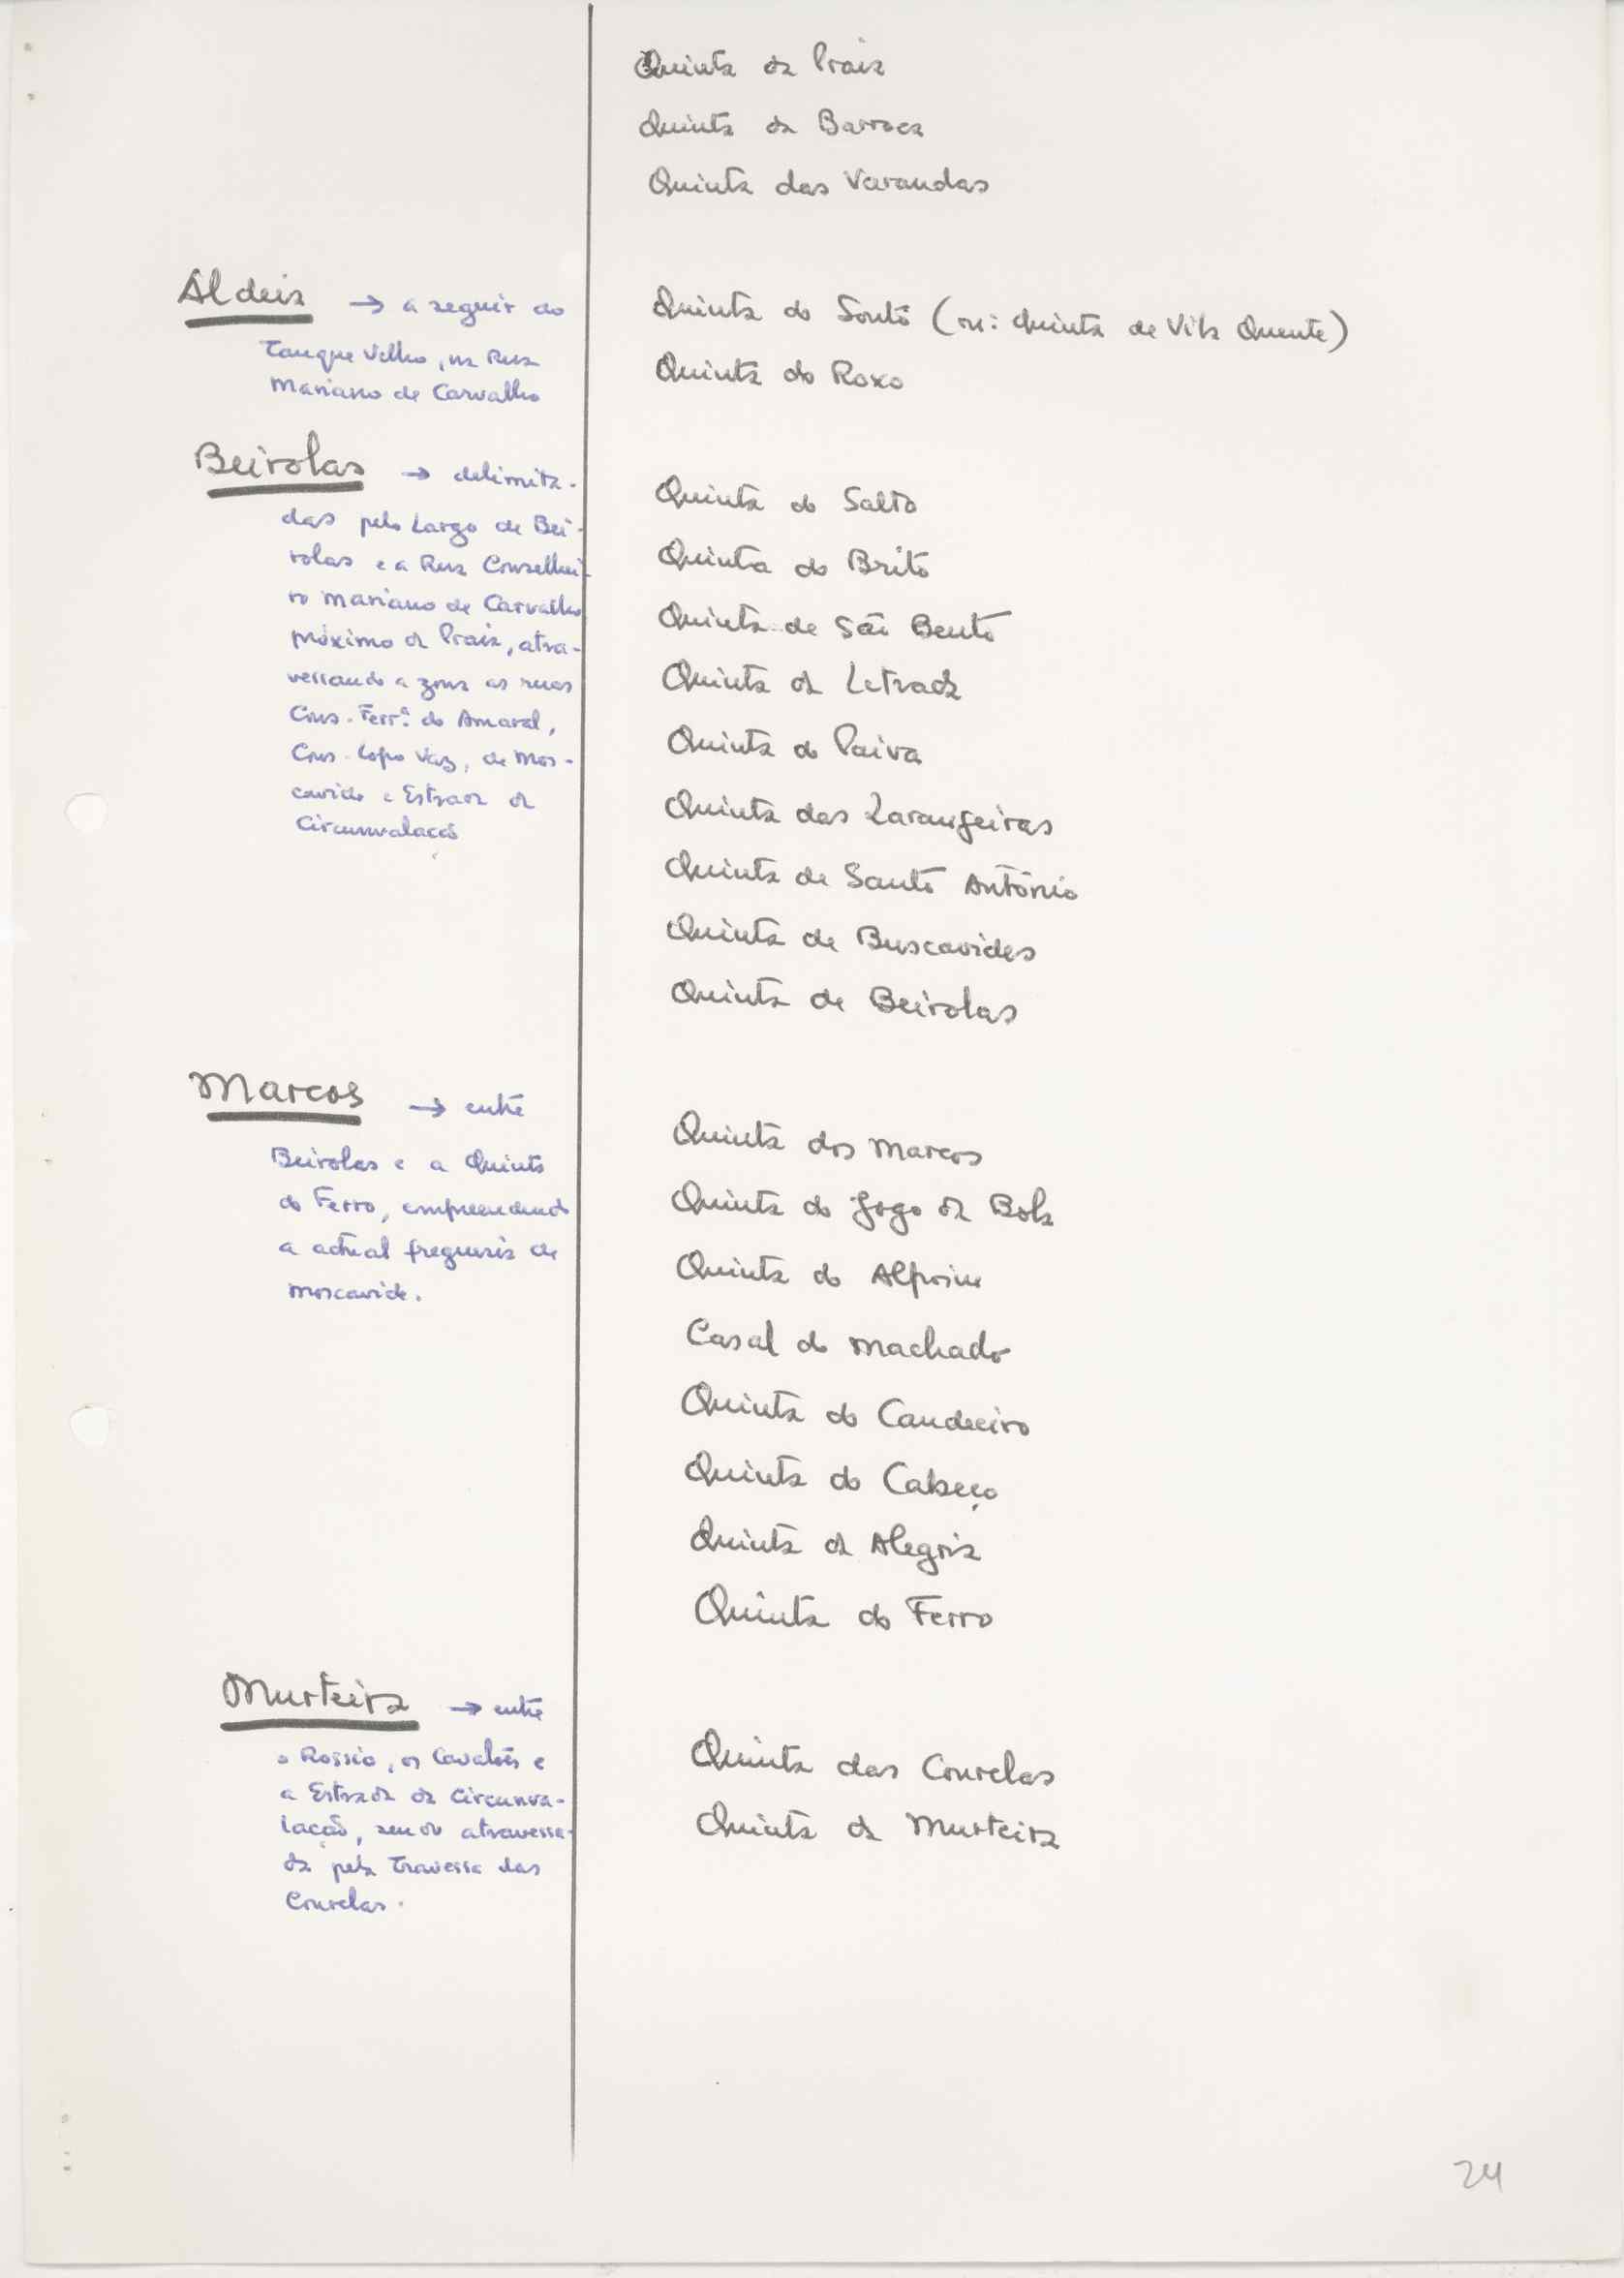 Quinta da Praia
Quinta da Barroca
Quinta das Varandas
Aldeia → a seguir ao
Tanque Velho, na Rua
Mariano de Carvalho
Quinta do Souto (ou: Quinta de Vila Quente)
Quinta do Roxo
Beirolas → delimita-
das pelo Largo de Bei-
rolas e a Rua Conselhei-
ro Mariano de Carvalho
próximo da Praia, atra-
vessando a zona as ruas
Cons. Ferrª do Amaral,
Cons. Lopo Vaz, de Mos-
cavide e Estrada da
Circunvalação
Quinta do Salto
Quinta do Brito
Quinta de São Bento
Quinta da Letrada
Quinta do Paiva
Quinta das Laranjeiras
Quinta de Santo António
Quinta de Buscavides
Quinta de Beirolas
Marcos → entre
Beirolas e a Quinta
do Ferro, empreendendo
a actual freguesia de
Moscavide.
Quinta dos Marcos
Quinta do Jogo da Bola
Quinta do Alpoim
Casal do Machado
Quinta do Candeeiro
Quinta do Cabeço
Quinta da Alegria
Quinta do Ferro
Murteira → entre
o Rossio, os Cavalões e
a Estrada da Circunva-
lação, sendo atravessa-
da pela Travessa das
Courelas.
Quinta das Courelas
Quinta da Murteira
24